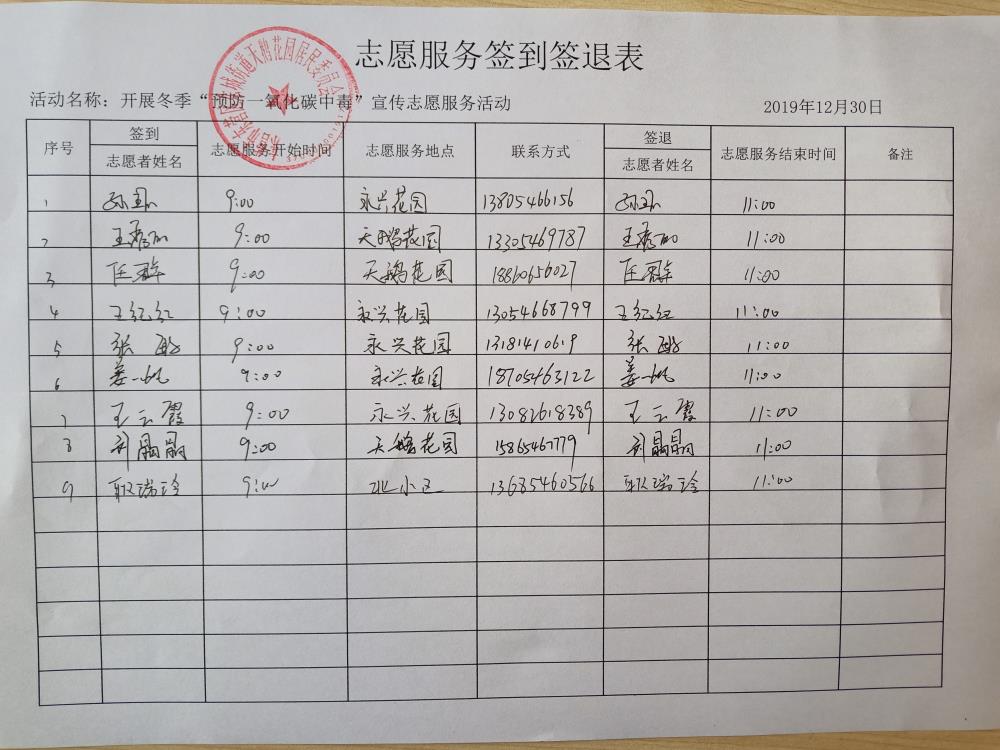 志愿服务签到签退表
活动名称：开展冬季“预防一氧化碳中毒”宣传志愿服务活动 2019年12月30日
序号 签到 志愿服务开始时间 志愿服务地点 联系方式 签退 志愿服务结束时间 备注
志愿者姓名 志愿者姓名
1 9:00 永兴花园 13805466156 11:00
2 9:00 天鹅花园 13305469787 11:00
3 9:00 天鹅花园 18860656027 11:00
4 王红红 9:00 永兴花园 13054668799 王红红 11:00
5 张 9:00 永兴花园 13181410619 张 11:00
6 姜一帆 9:00 永兴花园 18705463122 姜一帆 11:00
7 王云霞 9:00 永兴花园 13082618389 王云霞 11:00
8 刘晶晶 9:00 天鹅花园 15865467779 刘晶晶 11:00
9 耿瑞玲 9:00 小区 13685460566 耿瑞玲 11:00